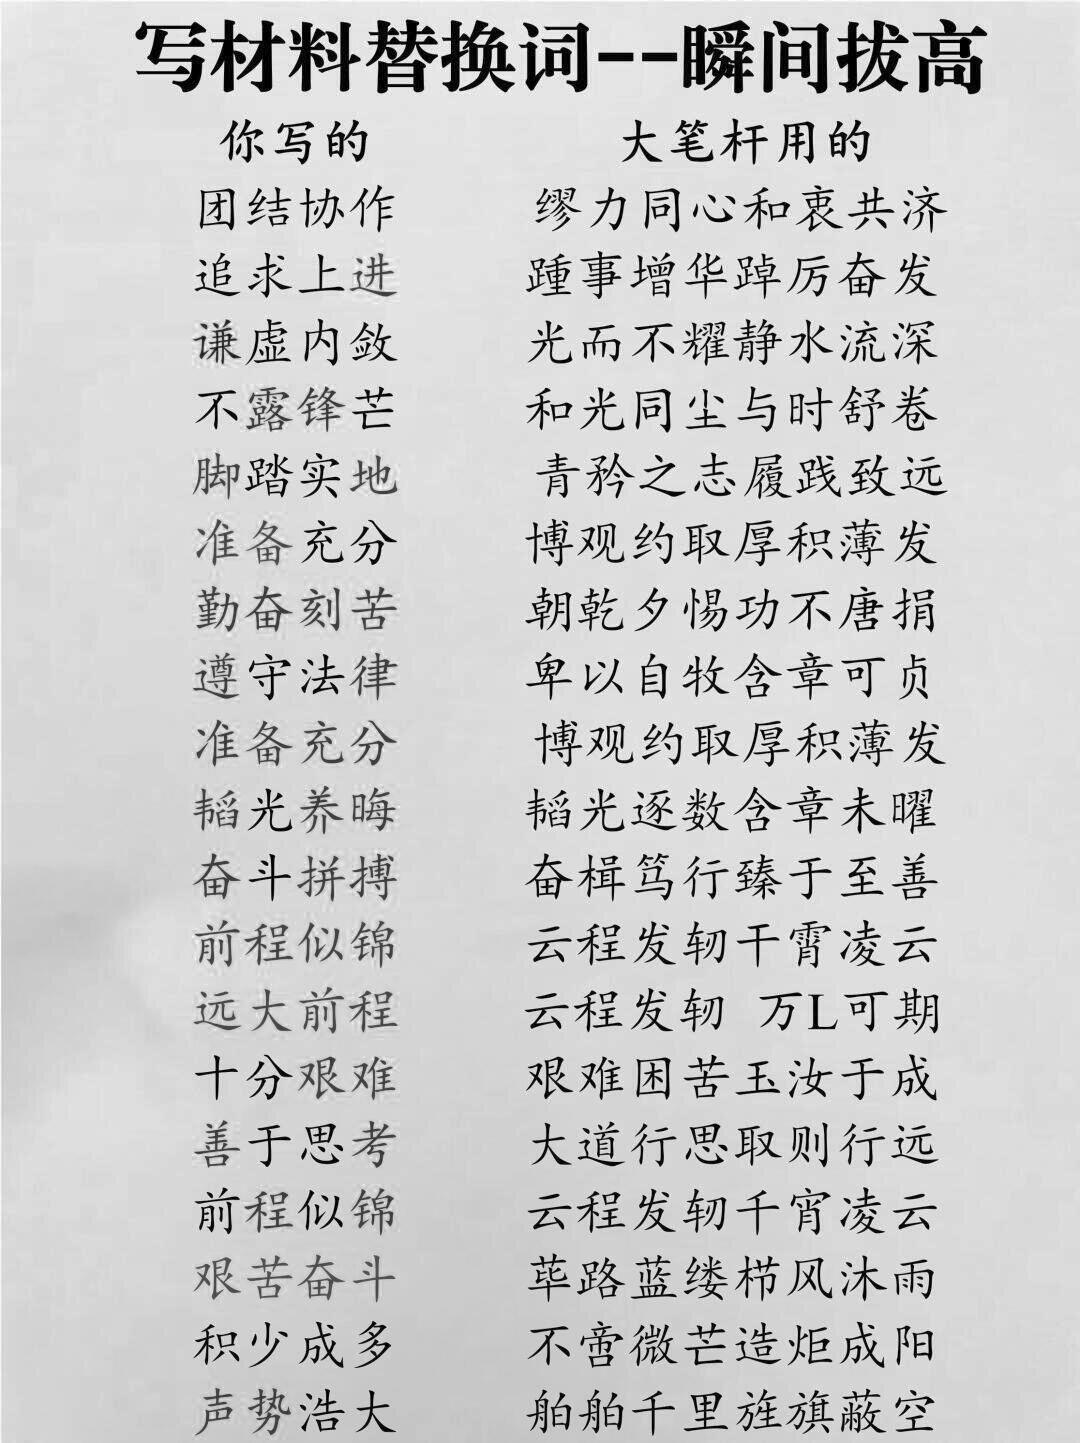 写材料替换词--瞬间拔高
你写的 大笔杆用的
团结协作 缪力同心和衷共济
追求上进 踵事增华踔厉奋发
谦虚内敛 光而不耀静水流深
不露锋芒 和光同尘与时舒卷
脚踏实地 青矜之志履践致远
准备充分 博观约取厚积薄发
勤奋刻苦 朝乾夕惕功不唐捐
遵守法律 卑以自牧含章可贞
准备充分 博观约取厚积薄发
韬光养晦 韬光逐数含章未曜
奋斗拼搏 奋楫笃行臻于至善
前程似锦 云程发轫干霄凌云
远大前程 云程发轫 万L可期
十分艰难 艰难困苦玉汝于成
善于思考 大道行思取则行远
前程似锦 云程发轫千宵凌云
艰苦奋斗 荜路蓝缕栉风沐雨
积少成多 不啻微芒造炬成阳
声势浩大 舶舶千里旌旗蔽空